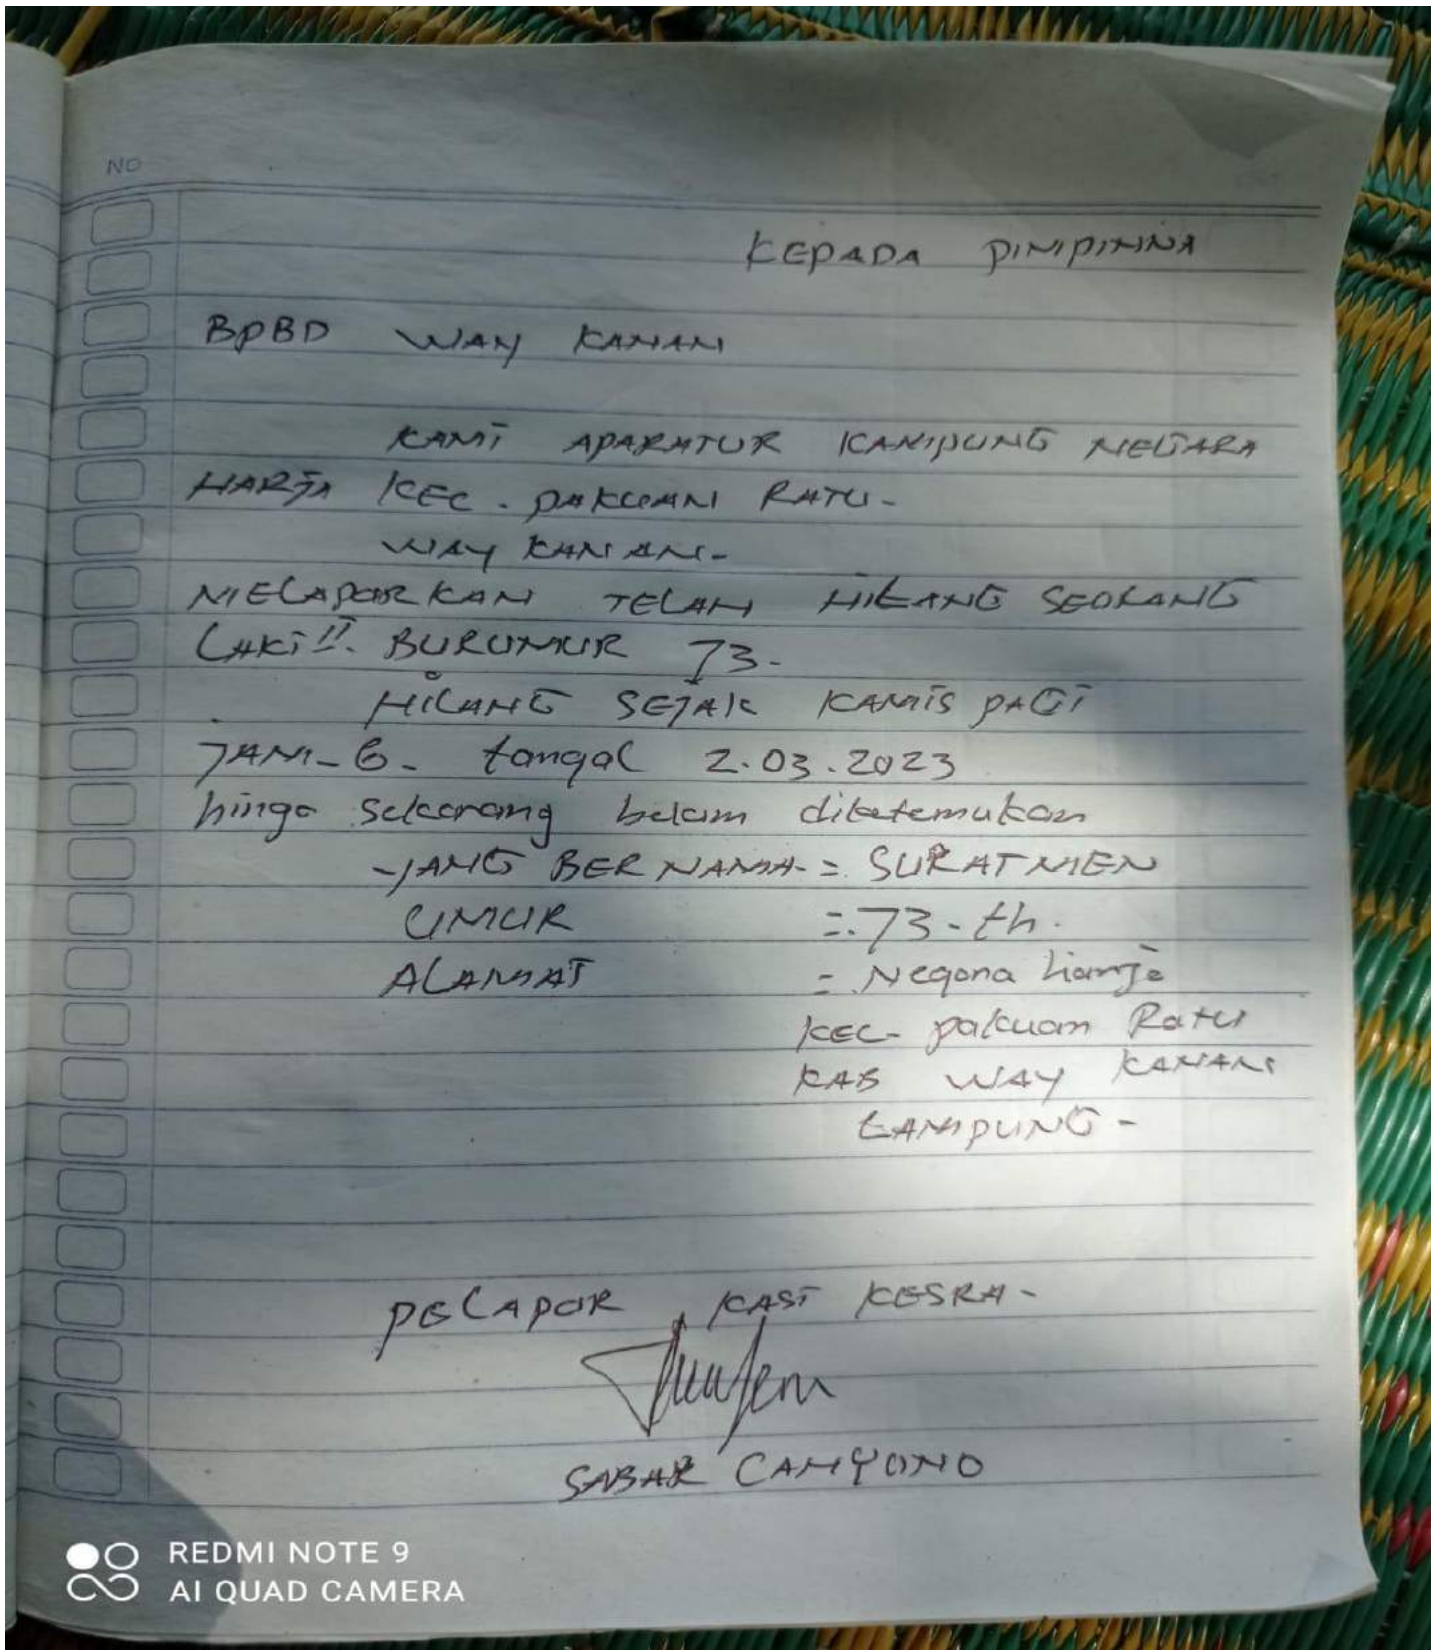 NO
KEPADA PIMPINNA
BPBD WAY KANAN
KAMI APARATUR KAMPUNG NEGARA
HARJA KEC. PAKUAN RATU-
WAY KANAN-
MELAPORKAN TELAH HILANG SEORANG
LAKI II. BURUMUR 73-
HILANG SEJAK KAMIS PAGI
JAM-6- tangal 2.03.2023
hinga sekarang belum diketemukan
YANG BERNAMA = SURATMEN
UMUR =.73-th.
ALAMAT = Negara Harja
KEC- pakuan Ratu
KAB WAY KANAN
LAMPUNG-
PELAPOR KASI KESRA-
SABAR CAHYONO
REDMI NOTE 9
AI QUAD CAMERA